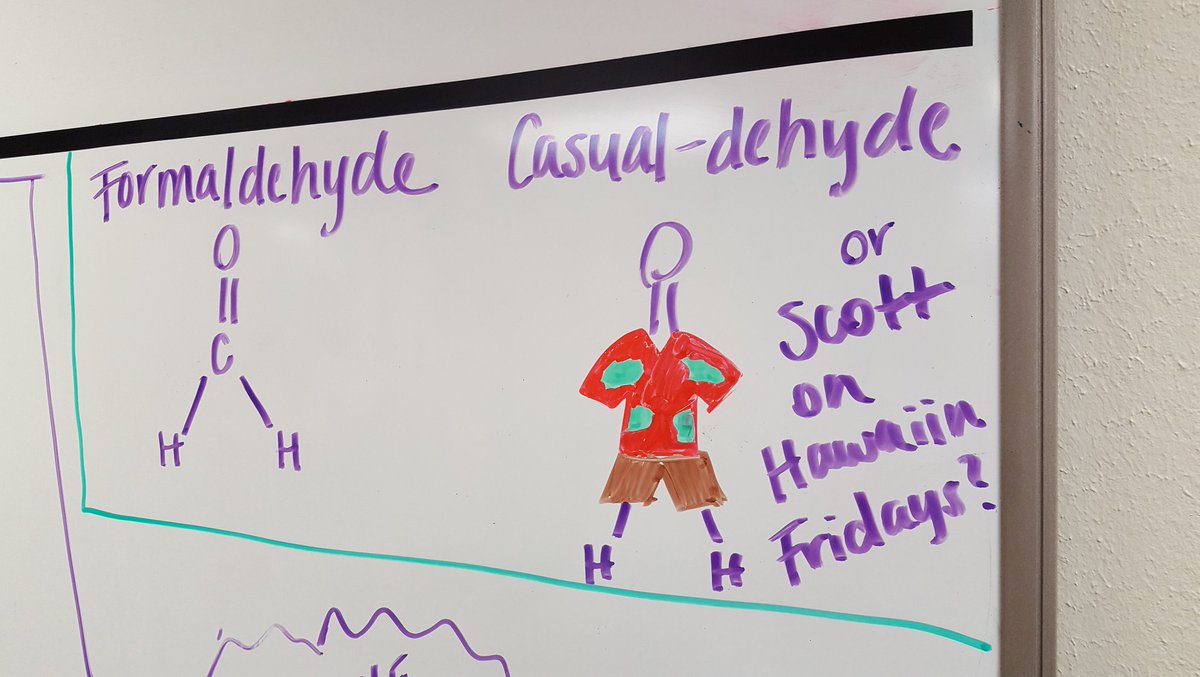 Formaldehyde
O
C
H H
Casual-dehyde
O
H H
or
Scott
on
Hawaiin
Fridays?